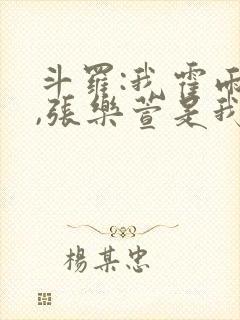 斗羅:我霍雨
,張樂萱是我
楊某忠